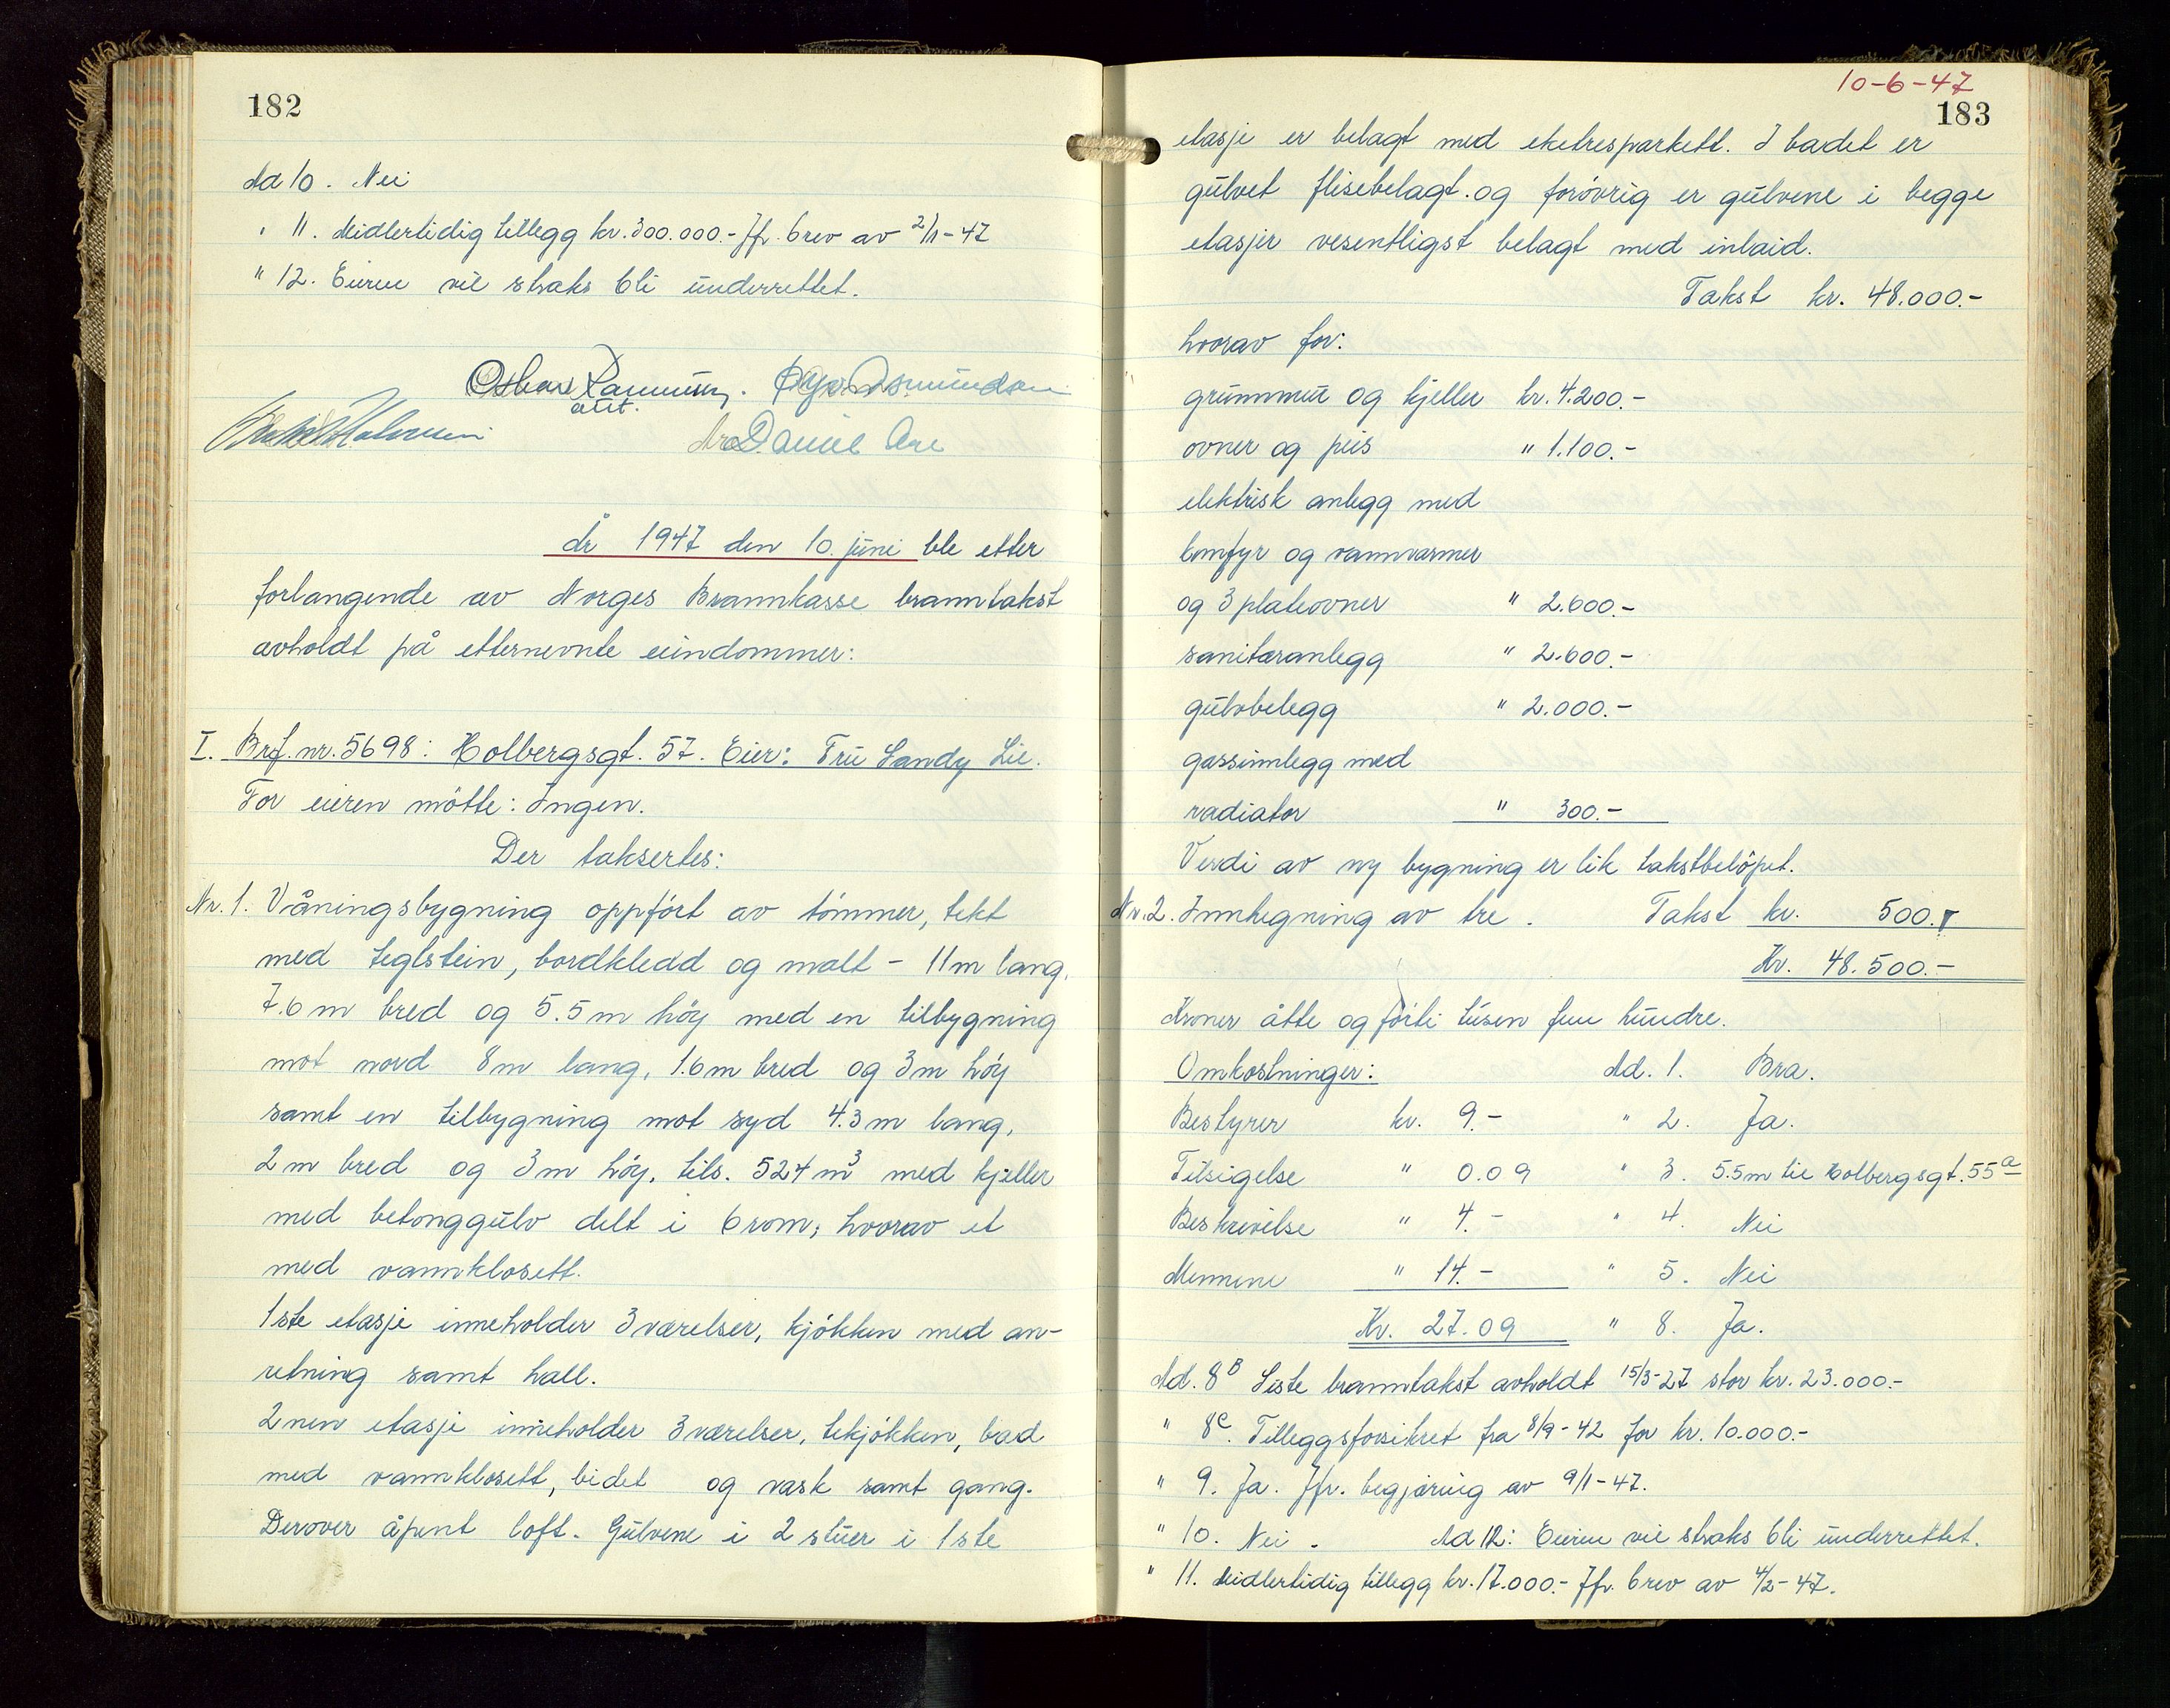 182
Ad 10. Nei
" 11. Midlertidig tillegg kr. 300.000.- Jfr. brev av 2/11-47
" 12. Eieren vil straks bli underrettet.
År 1947 den 10. juni ble etter
forlangende av Norges Brannkasse branntakst
avholdt på etternevnte eiendommer:
I. Brf. nr. 5698: Holbergsgt. 57. Eier: Fru Sandy Lie.
For eieren møtte: Ingen.
Der taksertes:
Nr. 1. Våningsbygning oppført av tømmer, tekt
med teglstein, bordkledd og malt - 11 m lang,
7.6 m bred og 5.5 m høy med en tilbygning
mot nord 8 m lang, 1.6 m bred og 3 m høy
samt en tilbygning mot syd 4.3 m lang,
2 m bred og 3 m høy, tils. 524 m³ med kjeller
med betonggulv delt i 6 rom, hvorav et
med vannklosett.
1ste etasje inneholder 3 værelser, kjøkken med an-
retning samt hall.
2nen etasje inneholder 3 værelser, tekjøkken, bad
med vannklosett, bidet og vask samt gang.
Derover åpent loft. Gulvene i 2 stuer i 1ste
10-6-47
183
etasje er belagt med eketresparkett. I badet er
gulvet flisebelagt og forøvrig er gulvene i begge
etasjer vesentligst belagt med inlaid.
Takst kr. 48.000.-
hvorav for:
grunnmur og kjeller kr. 4.200.-
ovner og peis " 1.100.-
elektrisk anlegg med
komfyr og vannvarmer
og 3 plateovner " 2.600.-
sanitæranlegg " 2.600.-
gulvbelegg " 2.000.-
gassinnlegg med
radiator " 300.-
Verdi av ny bygning er lik takstbeløpet.
Nr. 2. Innhegning av tre. Takst kr. 500.-
Kr. 48.500.-
Kroner åtte og førti tusen fem hundre.
Omkostninger: Ad. 1. Bra.
Bestyrer kr. 9.- " 2. Ja.
Tilsigelse " 0.09 " 3. 5.5 m til Holbergsgt. 55a
Beskrivelse " 4.- " 4. Nei
Mennene " 14.- " 5. Nei
Kr. 27.09 " 8. Ja.
Ad. 8B Siste branntakst avholdt 15/3-27 stor kr. 23.000.-
" 8C. Tilleggsforsikret fra 8/9-42 for kr. 10.000.-
" 9. Ja. Jfr. begjæring av 9/1-47.
" 10. Nei. Ad 12: Eieren vil straks bli underrettet.
" 11. Midlertidig tillegg kr. 17.000.- Jfr. brev av 4/2-47.